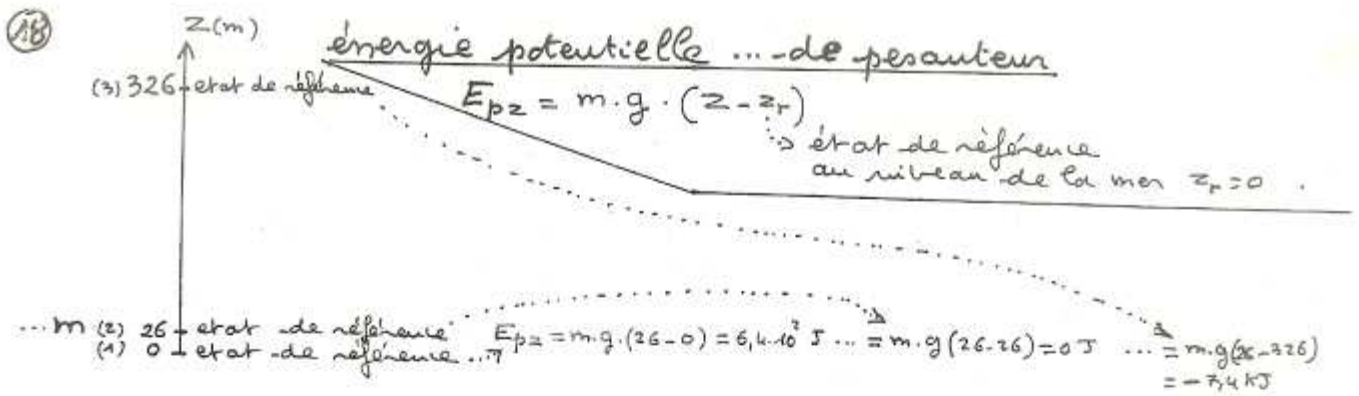 18
Z(m)
énergie potentielle ... de pesanteur
(3) 326 état de référence
Epz = m.g.(z - zr)
état de référence
au niveau de la mer zr = 0 .
... m (2) 26 état de référence
(1) 0 état de référence ...
Epz = m.g.(26-0) = 6,4.10² J ... = m.g(26-26) = 0 J ... = m.g(26-326)
= - 7,4 kJ